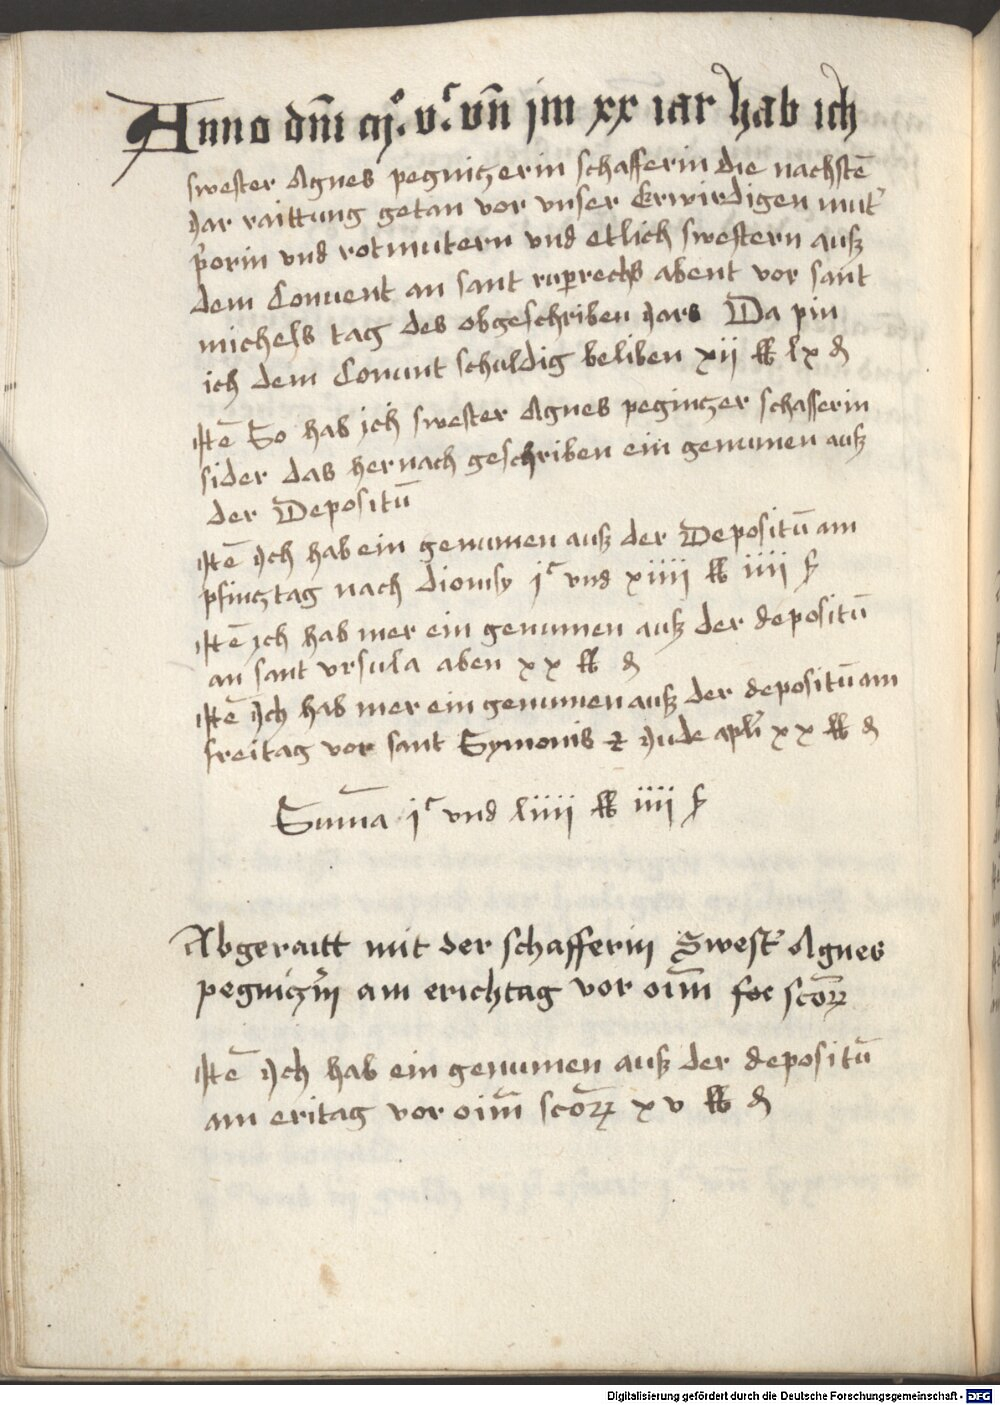 Anno dm̄ mͦ. vᶜ. vn̄ jm xx iar hab ich
swester Agnes pegnitzerin schafferin die nachstē
yar raittung getan vor vnser Erwirdigen mut'
p'orin vnd rotmutern vnd etlich swestern auß
dem Conuent an sant ruprechts abent vor sant
michels tag des obgeschriben yars Da pin
ich dem Conunt schuldig beliben xij ℔ lx ₰
Itē So hab ich swester Agnes peginczer schafferin
sider das hernach geschriben ein genumen auß
der Depositū
Itē Ich hab ein genumen auß der Depositū am
pfincztag nach dionisy jᶜ vnd xiiii ℔ iiii ß
Itē ich hab mer ein genumen auß der depositū
an sant vrsula aben xx ℔ ₰
Itē Ich hab mer ein genumen auß der depositū am
freitag vor sant Symonis ⁊ Jude apl'i xx ℔ ₰
Sum̄a jᶜ vnd liiii ℔ iiii ß
Abgeraitt mit der schafferin Swest' Agnes
pegnicz'in am erichtag vor oim̄ scōꝝ
Itē Ich hab ein genumen auß der depositū
am eritag vor oim̄ scōꝝ xv ℔ ₰
Digitalisierung gefördert durch die Deutsche Forschungsgemeinschaft - DFG